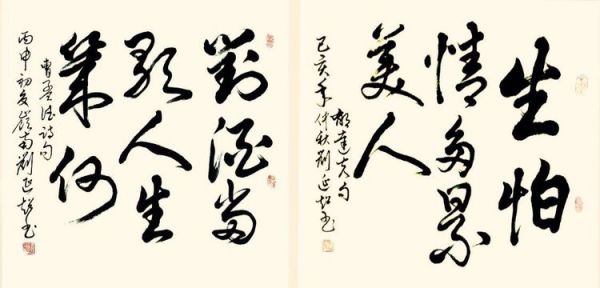 對酒當
歌人生
幾何
曹孟德詩句
丙申初夏嶺南劉延超書
生怕
情多累
美人
郁達夫句
己亥年仲秋劉延超書